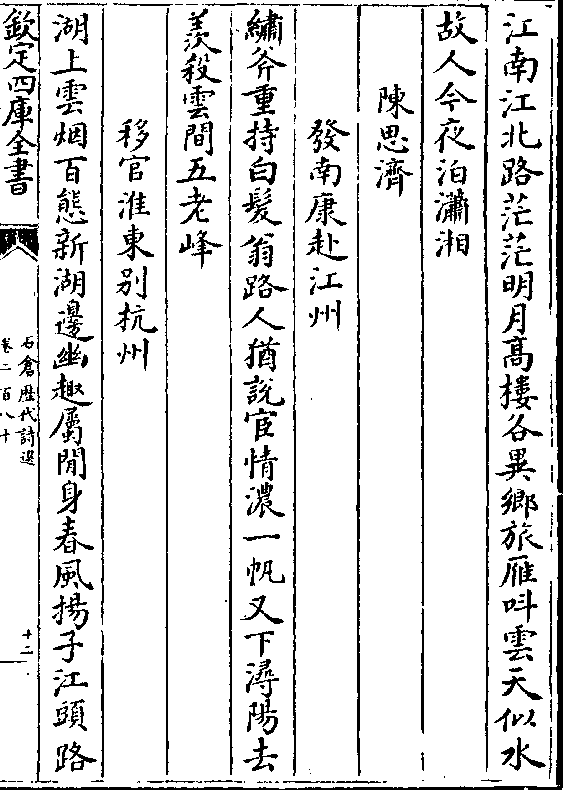 江南江北路茫茫明月髙樓各異鄉旅雁呌雲天似水
故人今夜泊瀟湘
陳思濟
發南康赴江州
繡斧重持白髮翁路人猶説宦情濃一帆又下潯陽去
羨殺雲間五老峰
移官淮東别杭州
湖上雲烟百態新湖邊幽趣屬閒身春風揚子江頭路
欽定四庫全書
石倉歴代詩選
卷二百八十
十二